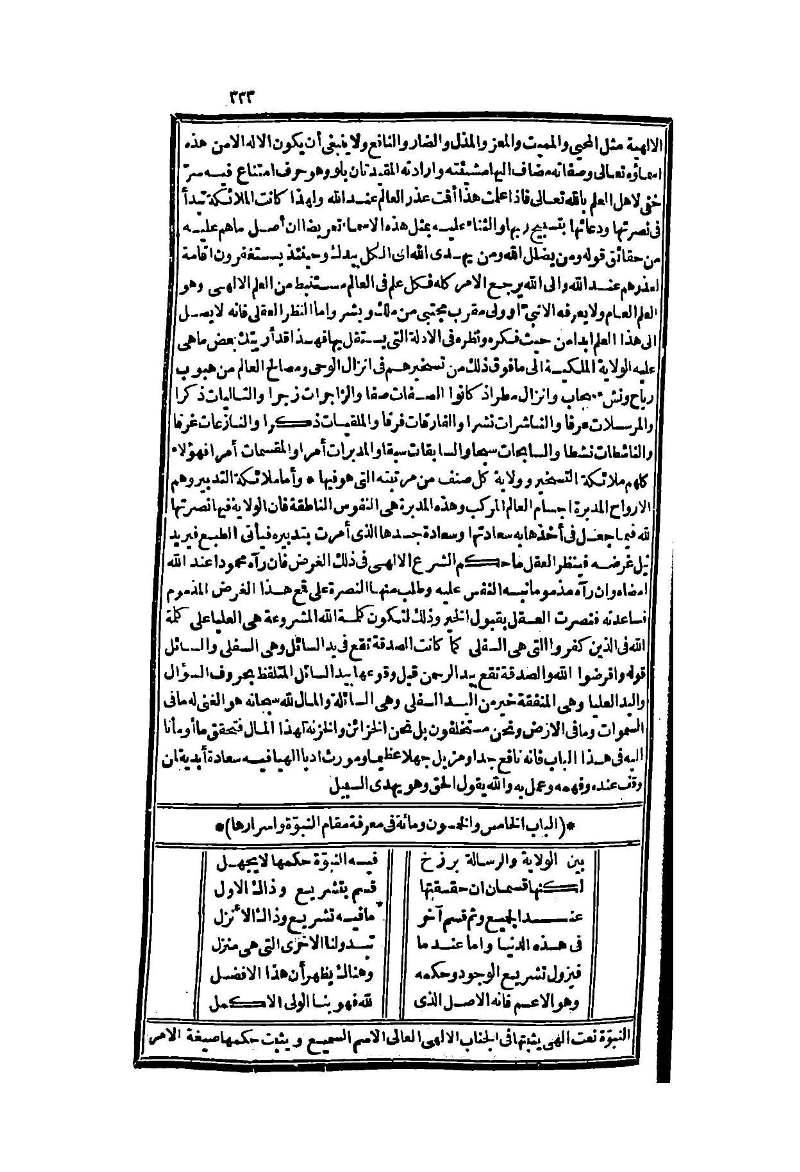 ٣٣٣
الالهية مثل المحيى والمميت والمعز والمذل والضار والنافع ولا ينبغى أن يكون الاله الا من هذه
اسماؤه تعالى وصفاته مضاف اليها مشيئته وارادته المقيدتان بلو وهو حرف امتناع فيه سر
خفى لاهل العلم بالله تعالى فاذا علمت هذا أقت عذر العالم عند الله ولهذا كانت الملائكة تبدأ
فى نصرتها ودعائها بتسبيح ربها والثناء عليه بمثل هذه الاسماء تعريضا ان أصل ماهم عليه
من حقائق قوله ومن يضلل الله ومن يهدى الله اى الكل بيدك وحينئذ يستغفرون اقامة
لعذرهم عند الله والى الله يرجع الامر كله فكل علم فى العالم مستنبط من العلم الالهى وهو
العلم العام ولا يعرفه الا نبى أو ولى مقرب مجتبى من ملك وبشر واما النظر العقلى فانه لا يصل
الى هذا العلم ابدا من حيث فكره ونظره فى الادلة التى يستقل بها فهذا قد أريتك بعض ماهى
عليه الولاية الملكية الى مافوق ذلك من تسخيرهم فى انزال الوحى ومصالح العالم من هبوب
رياح ونشء سحاب وانزال مطر اذ كانوا الصافات صفا والزاجرات زجرا والتاليات ذكرا
والمرسلات عرفا والناشرات نشرا والفارقات فرقا والملقيات ذكرا والنازعات غرقا
والناشطات نشطا والسابحات سبحا والسابقات سبقا والمدبرات أمرا والمقسمات أمرا فهؤلاء
كلهم ملائكة التسخير وولاية كل صنف من مرتبته التى هو فيها * وأما ملائكة التدبير وهم
الارواح المدبرة اجسام العالم المركب وهذه المدبرة هى النفوس الناطقة فان الولاية فيها نصرتها
لله فيما جعل فى أخذها به سعادتها وسعادة جسدها الذى أمرت بتدبيره فيأتى الطبع فيريد
نيل غرضه فينظر العقل ما حكم الشرع الالهى فى ذلك الغرض فان رآه محمودا عند الله
امضاه وان رآه مذموما نبه النفس عليه وطلب منها النصرة على قع هذا الغرض المذموم
فساعدته فنصرت العقل بقبول الخير وذلك لتكون كلمة الله المشروعة هى العليا على كلمة
الله فى الذين كفروا التى هى السفلى كما كانت الصدقة تقع فى يد السائل وهى السفلى والسائل
قوله واقرضوا الله والصدقة تقع بيد الرحمن قبل وقوعها بيد السائل المتلفظ بحروف السؤال
واليد العليا وهى المنفقة خير من اليد السفلى وهى السائلة والمال لله سبحانه هو الغنى له مافى
السموات ومافى الارض ونحن مستخلفون بل نحن الخزائن والخزنة لهذا المال فتحقق ما أومأنا
اليه فى هذا الباب فانه نافع جدا ومزيل جهلا عظيما ومورث ادبا الهيا فيه سعادة أبدية ان
وقف عنده وفهمه وعمل به والله يقول الحق وهو يهدى السبيل
*(الباب الخامس والخمسون ومائة فى معرفة مقام النبوّة واسرارها)*
بين الولاية والرسالة برزخ فيه النبوّة حكمها لا يجهل
لكنها قسمان ان حققتها قسم بتشريع وذاك الاول
عند الجميع وثم قسم آخر مافيه تشريع وذاك الأنزل
فى هذه الدنيا واما عند ما تبدو لنا الاخرى التى هى منزل
فيزول تشريع الوجود وحكمه وهناك يظهر أن هذا الافضل
وهو الاعم فانه الاصل الذى لله فهو بنا الولى الاكمل
النبوّة نعت الهى يثبتها فى الجناب الالهى العالى الاسم السميع ويثبت حكمها صيغة الامر